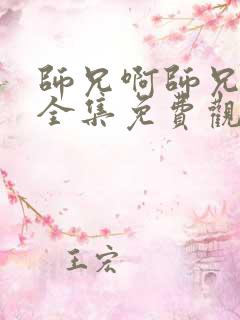 師兄啊師兄
全集免費觀
王宏